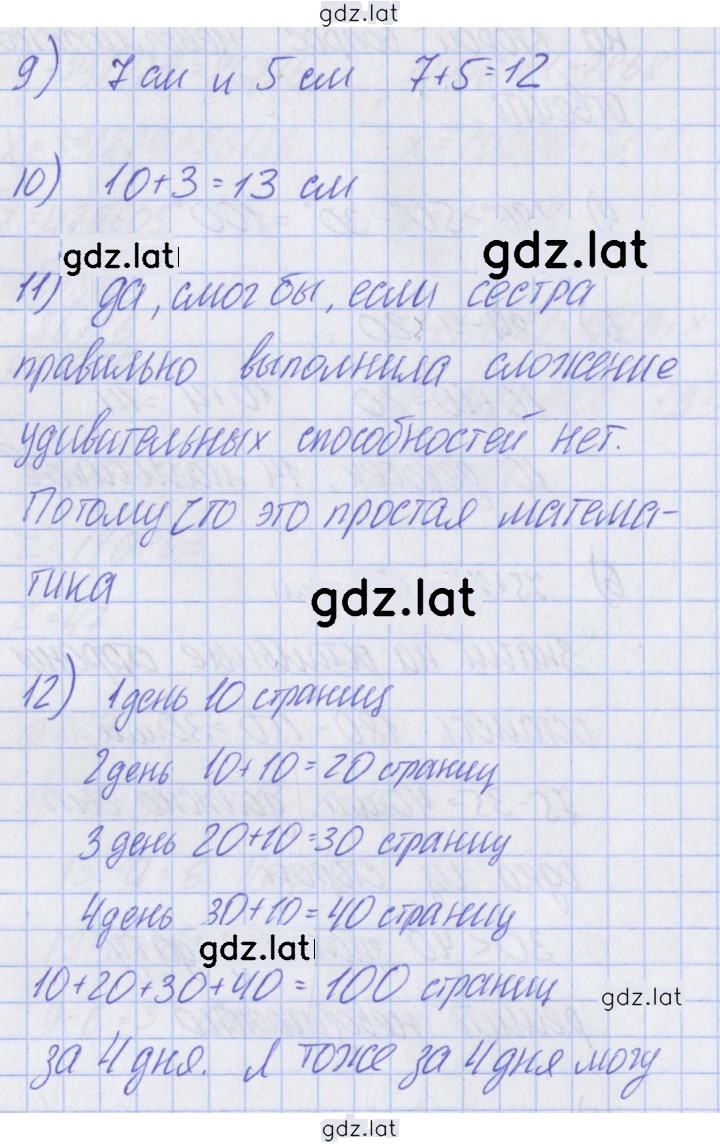 gdz.lat
9) 7 см и 5 см 7+5=12
10) 10+3=13 см
gdz.lat
gdz.lat
11) да, смог бы, если сестра
правильно выполнила сложение
удивительных способностей нет.
Потому что это простая матема-
тика
gdz.lat
12) 1 день 10 страниц
2 день 10+10=20 страниц
3 день 20+10=30 страниц
4 день 30+10=40 страниц
gdz.lat
10+20+30+40=100 страниц
gdz.lat
за 4 дня. Я тоже за 4 дня могу
gdz.lat